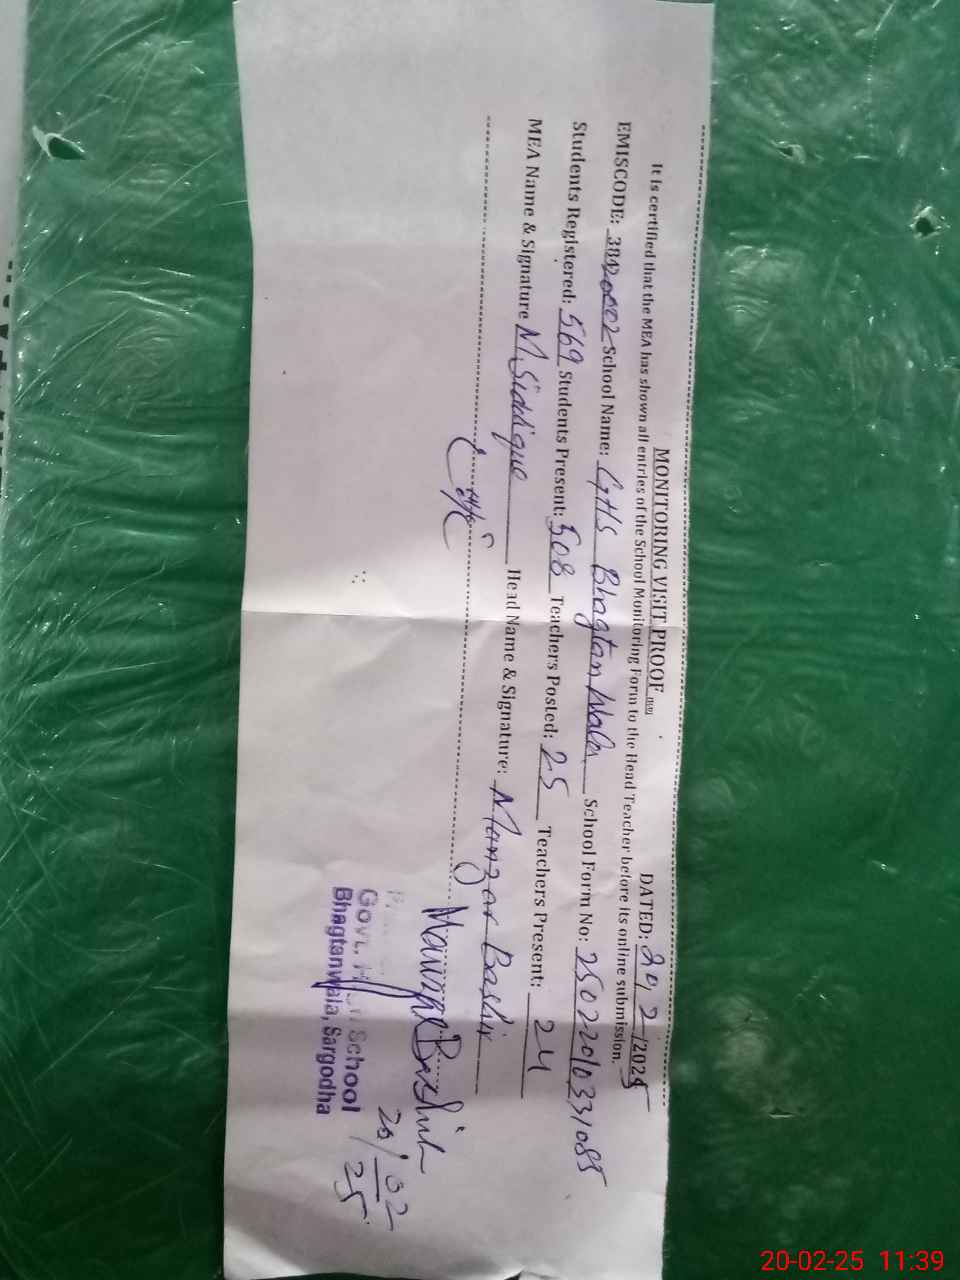 MONITORING VISIT PROOF
DATED: 20/2/2025
It is certified that the MEA has shown all entries of the School Monitoring Form to the Head Teacher before its online submission.
EMISCODE: School Name: GHS Bhagtanwala School Form No: 2502201033 1085
Students Registered: 569 Students Present: 508 Teachers Posted: 25 Teachers Present: 24
MEA Name & Signature M. Siddique Head Name & Signature: Manzar Bashir
Manzar Bashir
20/02
25
Govt. High School
Bhagtanwala, Sargodha
20-02-25 11:39